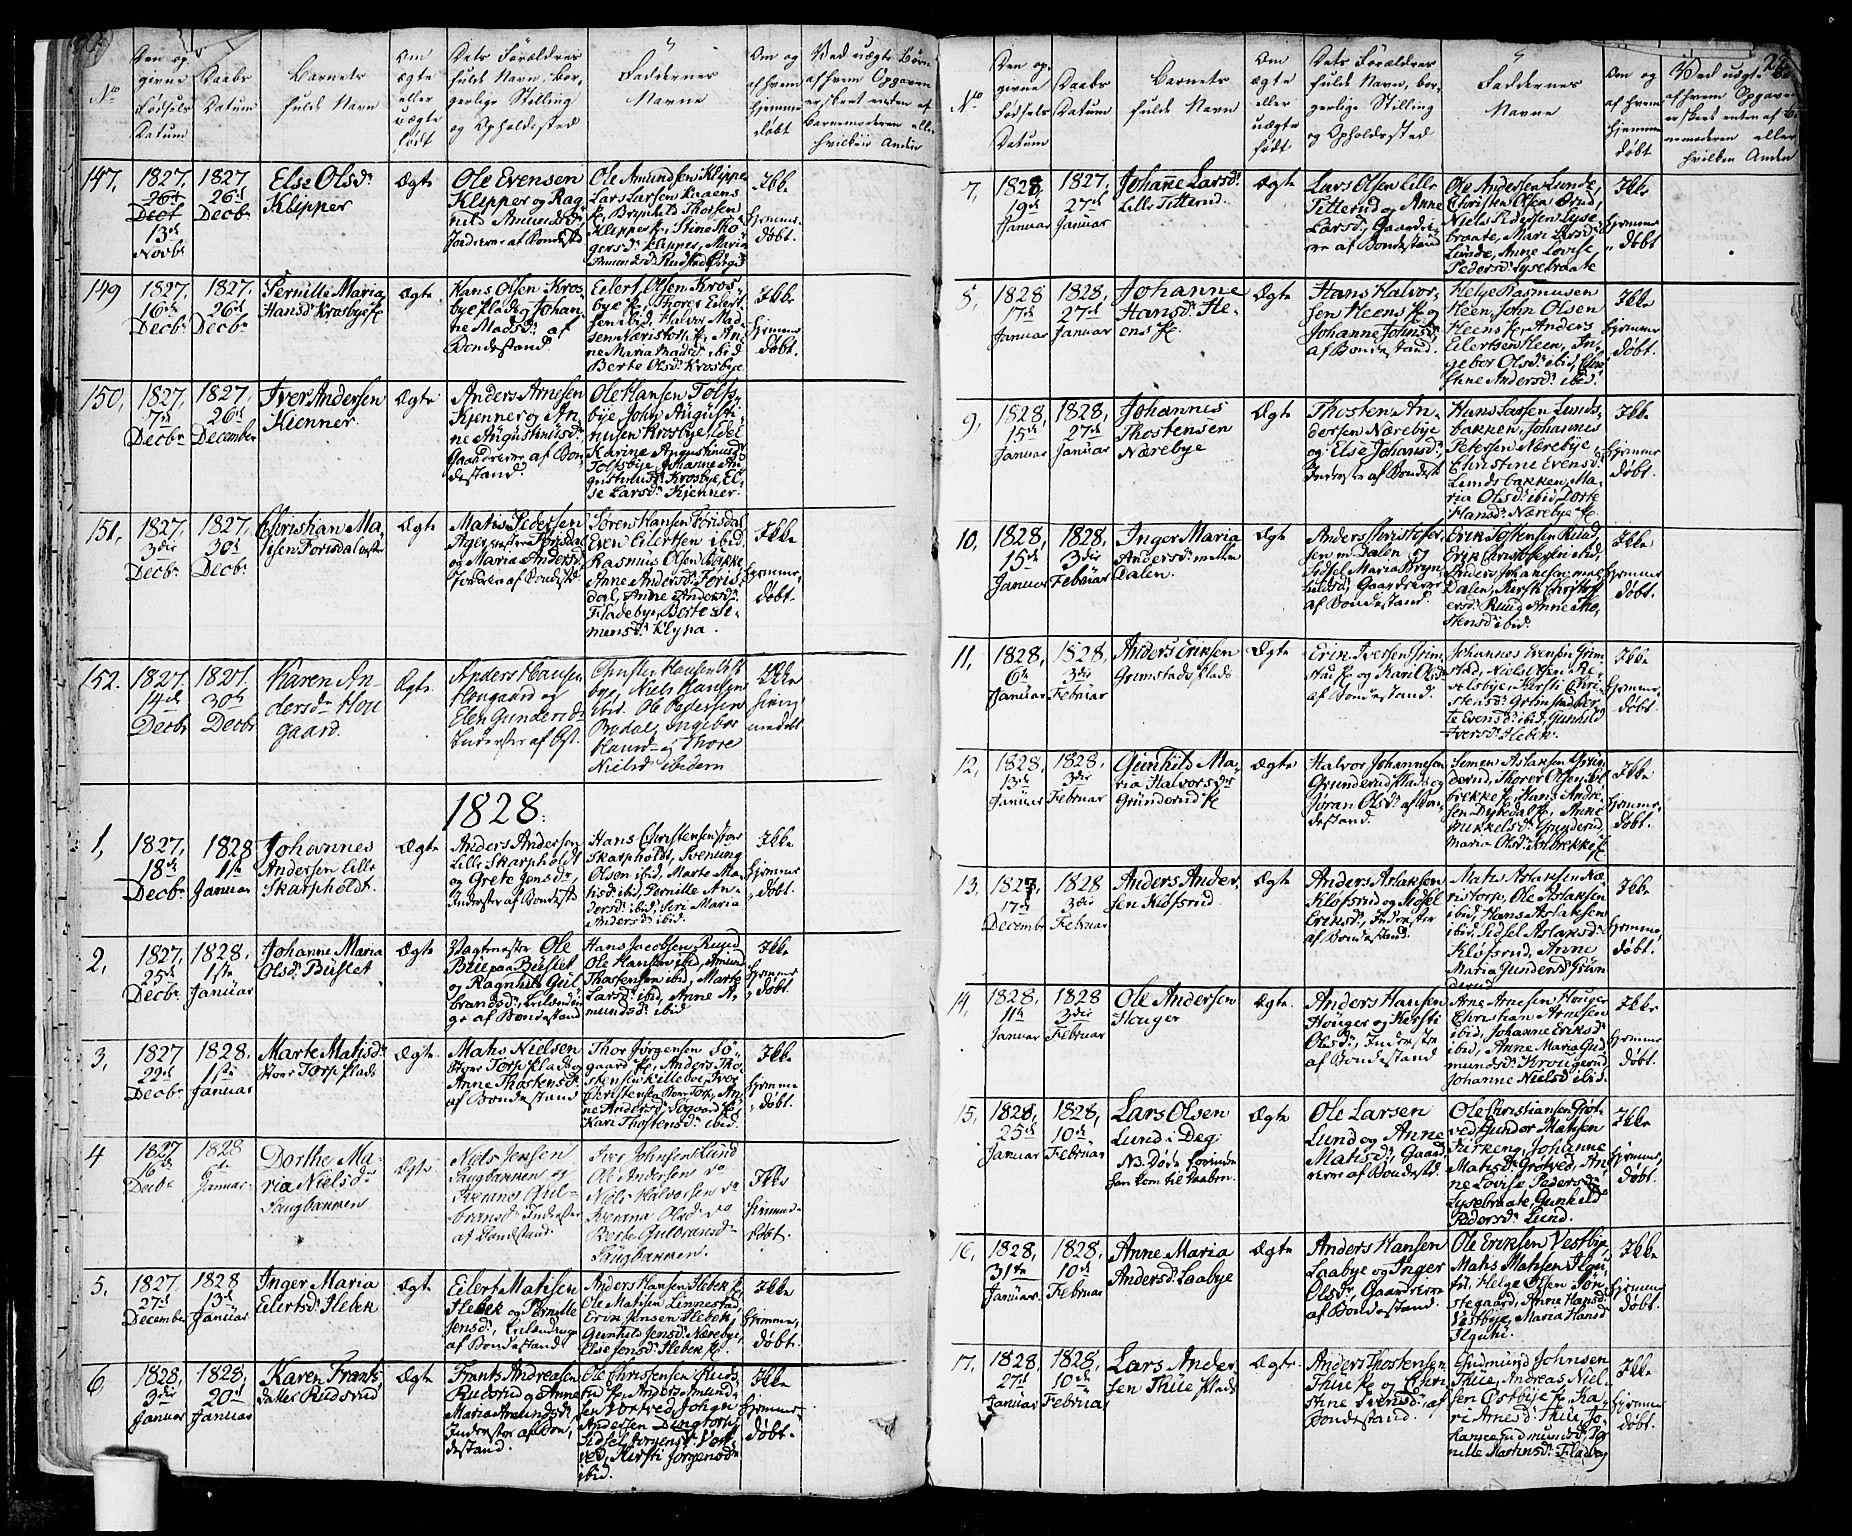 No
Den op
givne
Fødsels
Datum
Daabs
Datum
Barnets
fulde Navn
Om
ægte
eller
uægte
født
Dets Forældres
fulde Navn, bor,
gerlige Stilling
og Opholdssted
Faddernes
Navne
Om og
af hvem
hjemme
døbt
Ved uægte Børn
af hvem Opgaven
er skeet enten af
Barnemoderen eller
hvilken Anden
147,
1827,
26d
Decb
13d
Novbr
1827
26d
Decbr
Else Olsdr
Klipper
Ægte
Ole Evensen
Klipper og Rag-
nild Amundsdr
Jordeiere af Bondestd
Ole Amundsen Klipper
Lars Larsen Kraaens
Klipper, Marie
Ikke
hjemme
døbt.
149
1827,
16d
Decbr
1827,
26d
Decbr
Pernille Maria
Hansdr Krosbye
Ægte
Hans Olsen Kros-
bye plads og Johan-
ne Madsdr af
Bondestand.
Eilert Olsen Kros-
bye, Thorer Eilert-
sen ibid, Halvor Mad-
sen Næristorp, An-
ne Maria Madsdr ibid
Berte Olsdr Krosbye
Ikke
hjemme
døbt.
150,
1827,
7d
Decbr
1827,
26d
December
Iver Andersen
Kienner
Ægte
Anders Arnesen
Kjenner og An-
ne Augustinusdr
Gaardeiere af Bon-
destand.
Ole Hansen Tolfs-
bye, John Augusti-
nusen Krosbye, Edel
Karine Augustinusdr
Tolfsbye, Johanne Au-
gustinusdr Krosbye, El-
se Larsdr Kienner.
151,
1827,
3die
Decbr
1827,
30d
Decbr
Christian Ma-
tisen Forisdal
Ægte
Matis Pedersen
og Maria Andersdr
Jordeiere af Bondestd
Søren Hansen Forisdal
Even Eilertsen ibid
Rasmus Olsen Bakke
Anne Andersdr Foris-
dal, Anne Andersdr
Fladebye, Berte Si-
mensdr Klypa.
Ikke
hjemme,
døbt.
152.
1827
14d
Decbr
1827.
30d
Decbr
Karen An-
dersdr Hou-
gaard.
Ægte.
Anders Hansen
Hougaard og
Elen Gundersdr
Inderster af Bst.
bye, Niels Hansen
ibid. Ole Pedersen
Brodal, Ingebor
Niels ibidem
Ikke
hjem
medøbt
1828.
1,
1827,
18d
Decbr
1828
1te
Januar
Johannes
Andersen Lille
Skarpholdt.
Ægte
Anders Andersen
Lille Skarpholdt
og Grete Jensdr,
Inderster af Bondestd
Hans Christensen store
Skarpholdt, Svenung
Olsen ibid, Marte Ma-
tisdr ibid, Pernille An-
dersdr ibid, Siri Maria
Andersdr ibid.
Ikke
hjemme
døbt.
2,
1827,
25d
Decbr
1828.
1ste
Januar
Johanne Maria
Olsdr Buslet
Ægte
Ole
Bue paa Buslet
og Ragnhild Gul-
brandsdr,
af Bondestand
Hans Jacobsen Ruud
Ole Hansen ibid, Amund
Thostensen ibid, Marte
Larsdr ibid, Anne A-
mundsdr ibid
Ikke
hjemme
døbt
3,
1827
22d
Decbr
1828.
1ste
Januar
Marte Matisdr
Hver Torp plads
Ægte.
Matis Nielsen
Hver Torp plads og
Anne Thostensdr
af Bondestand
Thor Jørgensen Sø-
gaard, Anders Tho-
stensen Killebo, Iver
Christensen Hver Torp, An-
ne Andersdr Søgaard
Kari Thostensdr ibid.
Ikke
hjemme
døbt.
4
1827
16de
Decbr
1828
6te
Januar
Dorthe Ma-
ria Nielsdr
Saugbannen
Ægte
Niels Jensen
Saugbannen og
Gul-
bransdr Inderster
af Bondestand.
Iver Johnsen Lund
Ole Andersen do
Niels Halvorsen do
Olsdr do
Berte Gulbransdr
Saugbannen.
Ikke
hjemme
døbt.
5,
1827,
27d
December
1828
13d
Januar
Inger Maria
Eilertsdr Hebek
Ægte
Eilert Matisen
Hebek og Pernille
Jensdr,
af Bondestand
Anders Hansen Hebek
Ole Matisen Linnestad,
Erik Jensen Hebek,
Gunhild Jensdr Nærebye,
Else Jensdr Hebek
Ikke
hjemme,
døbt.
6,
1828,
3die
Januar
1828,
20d
Januar
Karen Frants-
datter Rudsrud
Ægte
Frants Andreasen
Rudsrud og Anne
Maria Amundsdr,
Inderster af Bon,
destand.
Ole Christensen Ruds-
rud, Anders Amund-
sen Vortved, John
Andersen Dingtorp,
Sidsel Jørgensdr Vort-
ved, Kirsti Jørgensdr
ibid.
Ikke
hjemme
døbt.
22
No
Den op,
givne
Fødsels
Datum
Daabs
Datum
Barnets
fulde Navn
Om
ægte
eller
uægte
født
Dets Forældres
fulde Navn, bor,
gerlige Stilling
og Opholdssted
Faddernes
Navne
Om og
af hvem
hjemme
døbt
Ved uægte
af hvem Opgaven
er skeet enten af
nemoderen eller
hvilken Anden
7,
1828
19d
Januar
1827,
27d
Januar
Johanne Larsdr
Lille Titterud.
Ægte
Lars Olsen Lille
Titterud og Anne
Larsdr, Gaardei-
ere af Bondestand
Ole Andersen Lunde
Christen Olsen Ørud,
Niels Pedersen Lyse-
braate, Mari Larsdr
Lunde, Anne Lovise
Pedersdr Lysebraate
Ikke
hjemme
døbt
8,
1828
17d
Januar
1828,
27d
Januar
Johanne
Hansdr He-
ens
Ægte
Hans Halvor-
sen Heens og
Johanne Johnsdr
af Bondestand.
Helge Rasmusen
Heen, John Olsen
Heens, Anders
Eilertsen Heen, In-
gebor Olsdr ibid,
Andersdr ibid.
Ikke
hjemme
døbt.
9,
1828,
15d
Januar
1828,
27d
Januar
Johannes
Thostensen
Nærebye
Ægte
Thosten An-
dersen Nærebye
og Else Johansdr,
Inderster af Bondestd
Hans Larsen Lunds-
bakken, Johannes
Petersen Nærebye,
Christine Evensdr
Lundsbakken, Ma-
ria Olsdr ibid, Dorte
Hansdr Nærebye
Ikke
hjemme
døbt.
10,
1828,
15d
Januar
1828,
3die
Februar
Inger Maria
Andersdr mellem
Dalen.
Ægte
Anders Christofer-
sen m Dalen og
Sidsel Maria Bryn-
hildsdr, Gaardeiere
af Bondestand.
Erik Tostensen Ruud,
Erik Christophersen ibid
Anders Johanesen mel
Dalen, Kirsti Christoff-
ersdr Ruud, Anne Tho-
stensdr ibid.
Ikke
hjemme,
døbt.
11,
1828,
6te
Januar
1828,
3die
Februar
Anders Eriksen
Grimstads plads
Ægte
Erik Iversen Grim-
stad og Kari Olsdr
af Bondestand.
Johannes Evensen Grim-
stad, Niels Olsen
Kirsti Chri-
stensdr Grimstad, Ber-
te Evensdr ibid, Gunhild
Iversdr Hebek.
Ikke
hjemme,
døbt.
12,
1828,
13d
Januar
1828,
3die
Februar
Gunhild Ma-
ria Halvorsdr
Grunderud
Ægte
Halvor Johannesen
Grunderud plads og
Joran Olsdr af Bon-
destand.
Simen Aslaksen Grun-
derud, Thorer Olsen
brekke, Hans Andre-
sen Dyrkdal, Anne
Mikkelsdr Grunderud,
Maria Olsdr brekke
Ikke
hjemme,
døbt.
13,
1827
17d
Decembr
1828
3die
Februar
Anders Ander-
sen Klofsrud
Ægte
Anders Aslaksen
Klofsrud og Sidsel
Eriksdr, Inderster
af Bondestand.
Matis Aslaksen Næ-
ristorp, Ole Aslaksen
ibid, Hans Aslaksen
ibid, Sidsel Aslaksdr
Klofsrud, Anne
Maria Gundersdr Grun
derud
Ikke
hjemme,
døbt.
14,
1828,
11te
Januar
1828
3die
Februar
Ole Andersen
Houger
Ægte.
Anders Hansen
Houger og Kirsti
Olsdr, Inderster
af Bondestand
Arne Arnesen Houger
Christian Arnesen
ibid, Johanne Eriksdr
ibid, Anne Maria Gud
mundsdr Krougerud
Johanne Nielsd ibid.
Ikke
hjemme
døbt.
15,
1828,
25d
Januar
1828,
10de
Februar
Lars Olsen
Lund i Deg:
NB. Døde forinden
han kom til Daaben.
Ægte
Ole Larsen
Lund og Anne
Matisdr, Gaard-
eiere af Bondestd.
Ole Christiansen Grøt-
ved, Gundor Matisen
Kirkeng, Johanne
Matisdr Grøtved, An-
ne Lovise Pedersdr
Lysebraate, Gunhild
Pedersdr Lund.
Ikke
hjemme,
døbt.
16,
1828,
31te
Januar
1828,
10de
Februar
Anne Maria
Andersdr Laabye
Ægte
Anders Hansen
Laabye og Inger
Olsdr, Gaardeiere
af Bondestand.
Ole Eriksen Vestbye
Matis Matisen Ilgu-
hi, Helge Olsen Jør-
stegaard, Anna Hansdr
Vestbye, Maria Hansd
Ilguhi.
Ikke
hjemme
døbt.
17,
1828,
27d
Januar
1828,
10de
Februar
Lars Ander
sen Thue plads
Ægte.
Anders Thostensen
Thue og Chri-
stine Svensdr, af
Bondestand.
Gudmund Johnsen
Thue, Andreas Niel-
sen Østbye, Ka-
ri Arnesdr Thue, Jo-
hanne Gudmundsdr, Per
nille Martinsdr Fladbey
Ikke
hjemme
døbt.